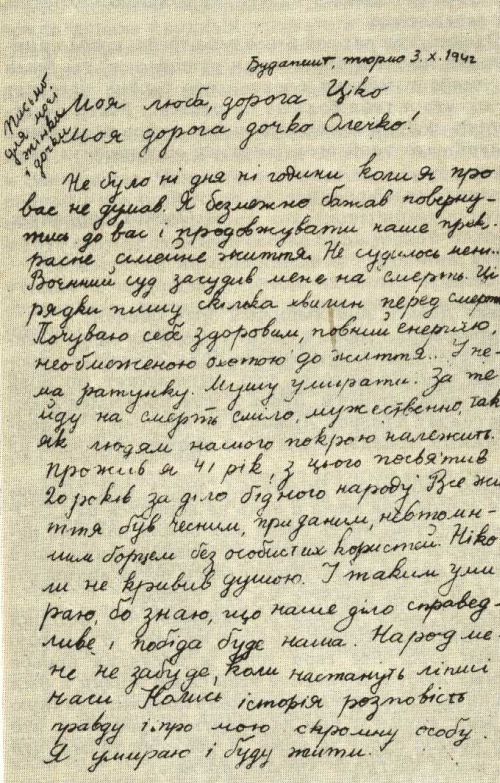 Будапешт, тюрма 3.X.1942
Письмо
для моєї
жінки
і дочки
Моя люба, дорога Ціко
Моя дорога дочко Олечко!
Не було ні дня ні години коли я про
вас не думав. Я безмежно бажав поверну-
тись до вас і продовжувати наше прек-
расне сімейне життя. Не судилось мені..
Воєнний суд засудив мене на смерть. Ці
рядки пишу скілька хвилин перед смерт
Почуваю себе здоровим, повний енергією,
необмеженою охотою до життя.. І не-
ма ратунку. Мушу умирати. За те
йду на смерть сміло, мужественно, так
як людям нашого покрою належить.
Прожив я 41 рік, з цього посвятив
20 років за діло бідного народу. Все жи
ття був чесним, приданим, невтомн-
ним борцем без особистих користей. Ніко
ли не кривив душою. І таким уми
раю, бо знаю, що наше діло справед-
ливе і побіда буде наша. Народ ме-
не не забуде, коли настануть ліпші
часи Колись історія розповість
правду і про мою скромну особу.
Я умираю і буду жити.